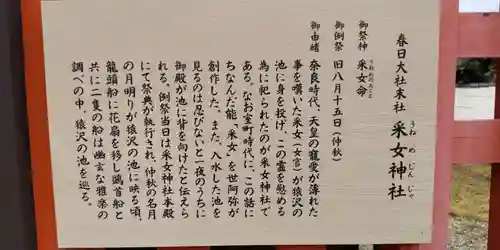 春日大社末社 采女神社
うねめじんじゃ
御祭神 采女命
うねめのみこと
御例祭 旧八月十五日(仲秋)
御由緒 奈良時代、天皇の寵愛が薄れた
事を嘆いた采女(女官)が猿沢の
池に身を投げ、この霊を慰める
為に祀られたのが采女神社で
ある。なお室町時代に、この話に
ちなんだ能「采女」を世阿弥が
創作した。また、入水した池を
見るのは忍びないと一夜のうちに
御殿が池に背を向けたと伝えら
れる。例祭当日は采女神社本殿
にて祭典が執行され、仲秋の名月
の月明りが猿沢の池に映る頃、
龍頭船に花扇を移し鷁首船と
共に二隻の船は幽玄な雅楽の
調べの中、猿沢の池を巡る。